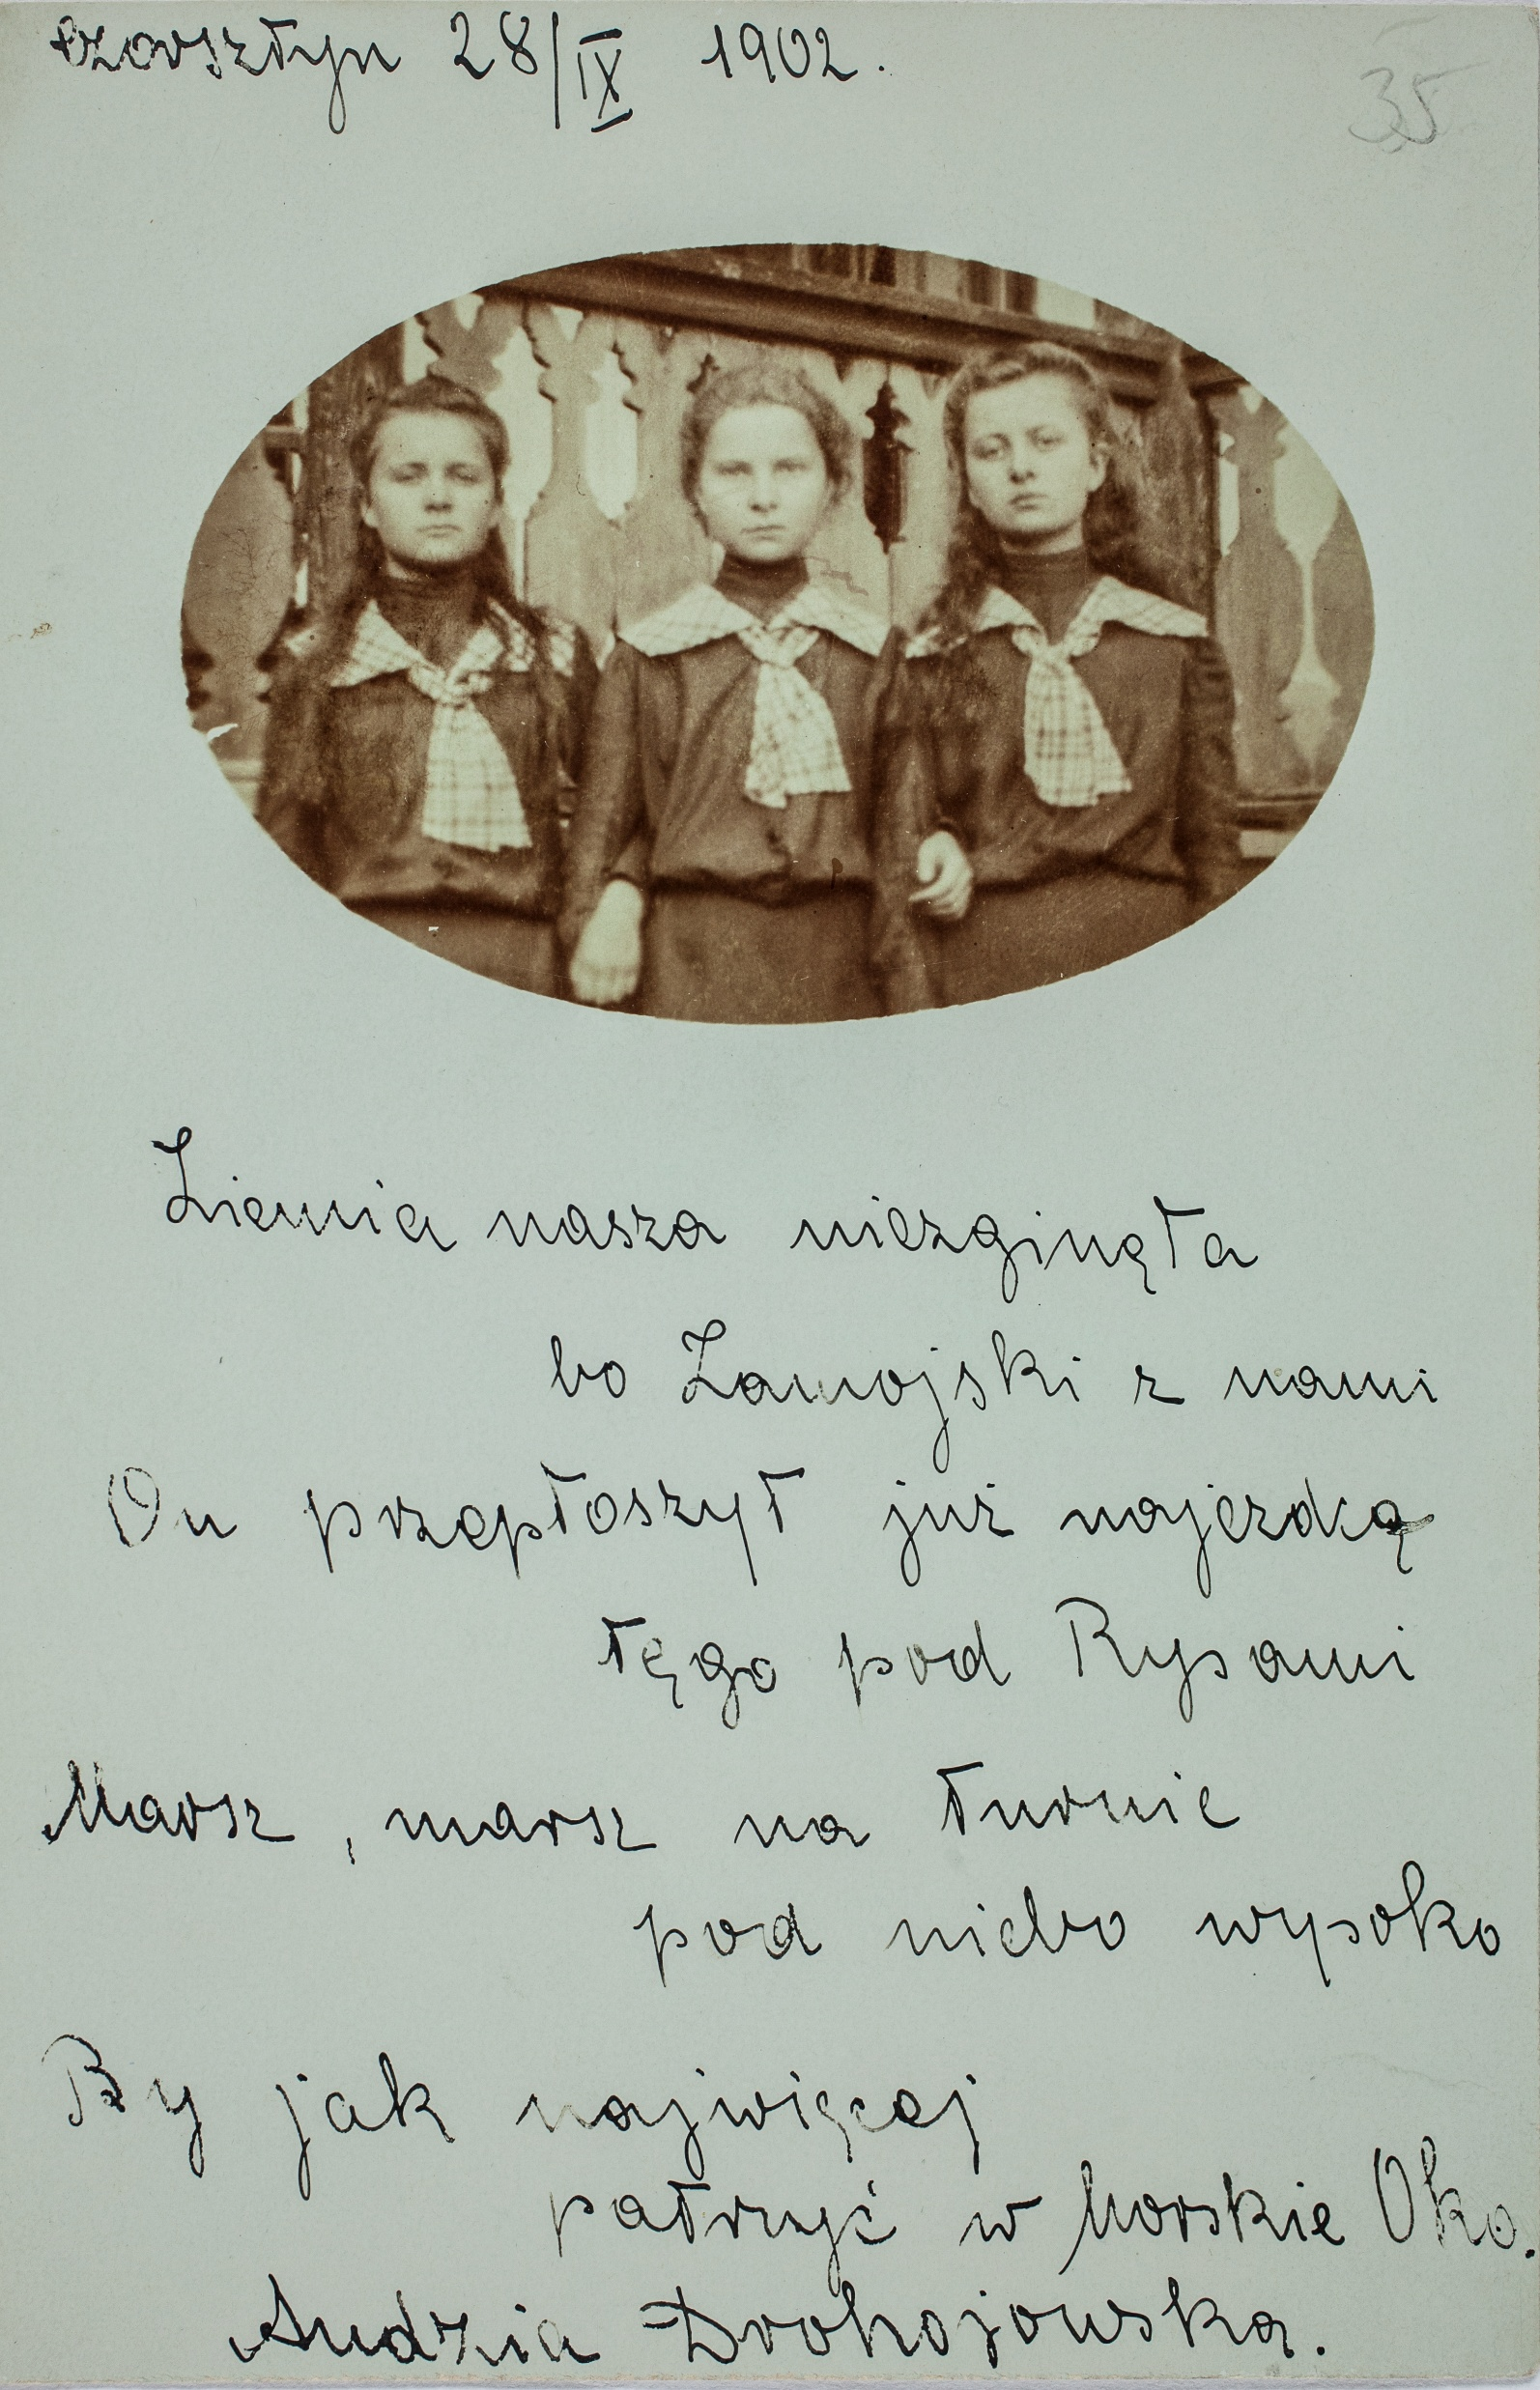 Czorsztyn 28/IX 1902.
35
Ziemia nasza niezginęła
bo Zamojski z nami
On przepłoszył już najezdcą
tęgo pod Rysami
Marsz, marsz na turnie
pod niebo wysoko
By jak najwięcej
patrzyć w Morskie Oko.
Andzia Drohojowska.